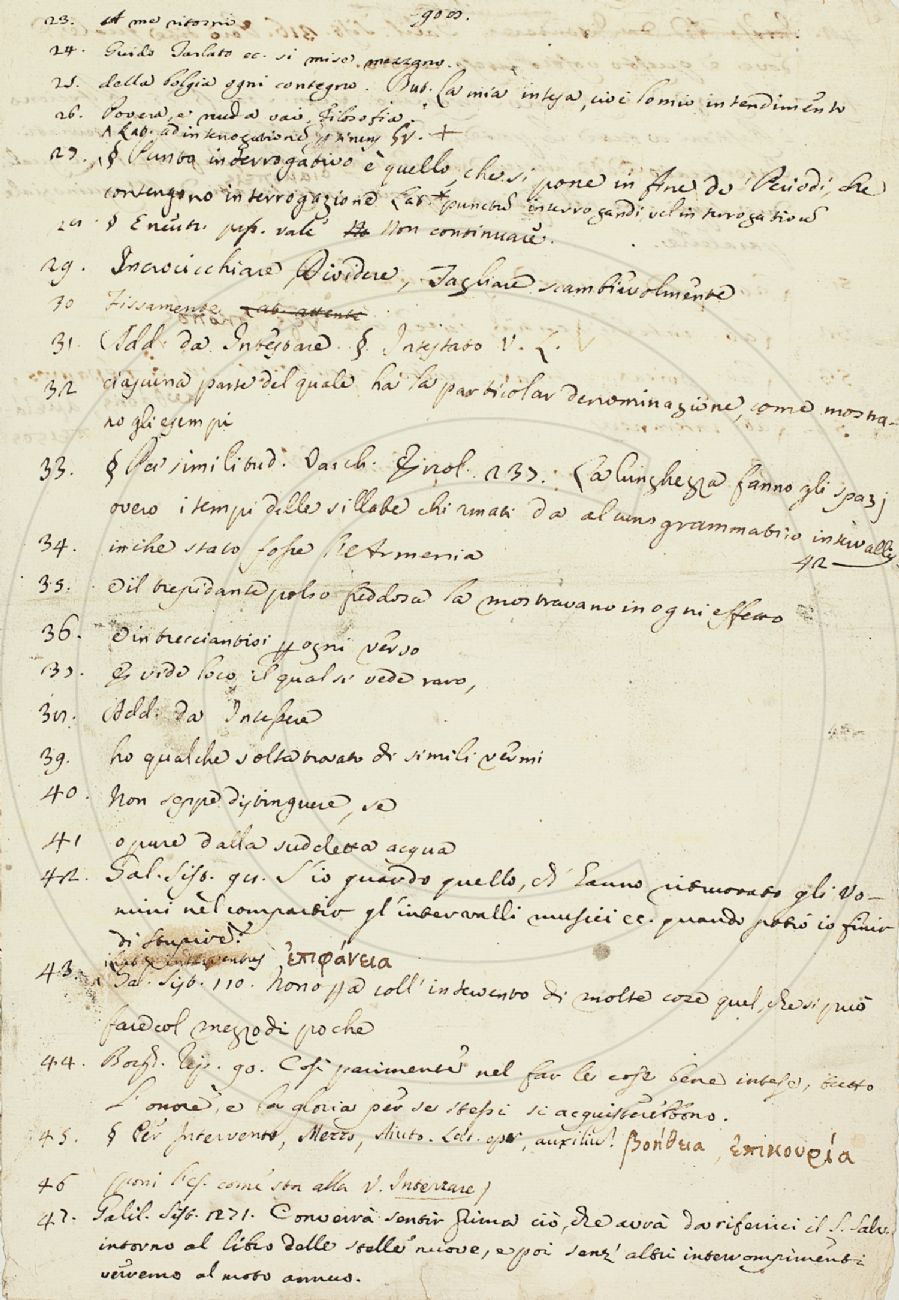 900.
23. A me ritorni
24. Guido Tarlato ec. si mise mezzano.
25. della bolgia ogni contegno. But. La mia intesa, cioè lo mio intendimento
26. Povera, e nuda vai, Filosofia.
Lat. ad interrogationem Gr. +
27. § Punto interrogativo è quello, che si pone in fine de' Periodi, che
contengono interrogazione Lat. + punctum interrogandi, vel interrogationis
28. § E neutr. pass. vale Non continuare.
29. Incrocicchiare, Dividere, Tagliare scambievolmente
30 Fissamente Lat. attente
31. Add. da Intestare. § Intestato V. L. V
32 ciascuna parte del quale ha la particolar denominazione, come mostra-
no gli esempi
33. § Per similitud. Varch. Ercol. 237. La lunghezza fanno gli spazj
overo i tempi delle sillabe chiamati da alcuno grammatico intervalli
42
34. in che stato fosse l'Armenia
35. e il trepidante polso feddosa la mostravano in ogni effetto
36. e intrecciantisi p ogni verso
37. E vide loco, il qual si vede raro,
38. Add. da Intessere
39. ho qualche volta trovato di simili vermi
40. Non seppe distinguere, se
41 opure dalla suddetta acqua
42. Gal. Sist. 98. S'io guardo quello, ch' hanno ritrovato gli Uo-
mini nel compartir gl'intervalli musici ec. quando potrò io finir
di stupire?
ἐπιφάνεια
43. Gal. Sist. 110. Non opera coll'intervento di molte cose quel, che si può
fare col mezzo di poche
44. Borgh. Rip. 90. Così parimente nel far le cose bene intese, tutto
l'onore, e la gloria per se stessi si acquisterebbono.
45. § Per Intervento, Mezzo, Aiuto. Lat. ope, auxilium βοήθεια, ἐπικουρία
46 poni l'es. come sta alla V. Interzare)
47. Galil. Sist. 271. Converrà sentir prima ciò, che avrà da riferirci il S. Salv.
intorno al libro delle stelle nuove, e poi senz' altri interrompimenti
verremo al moto annuo.